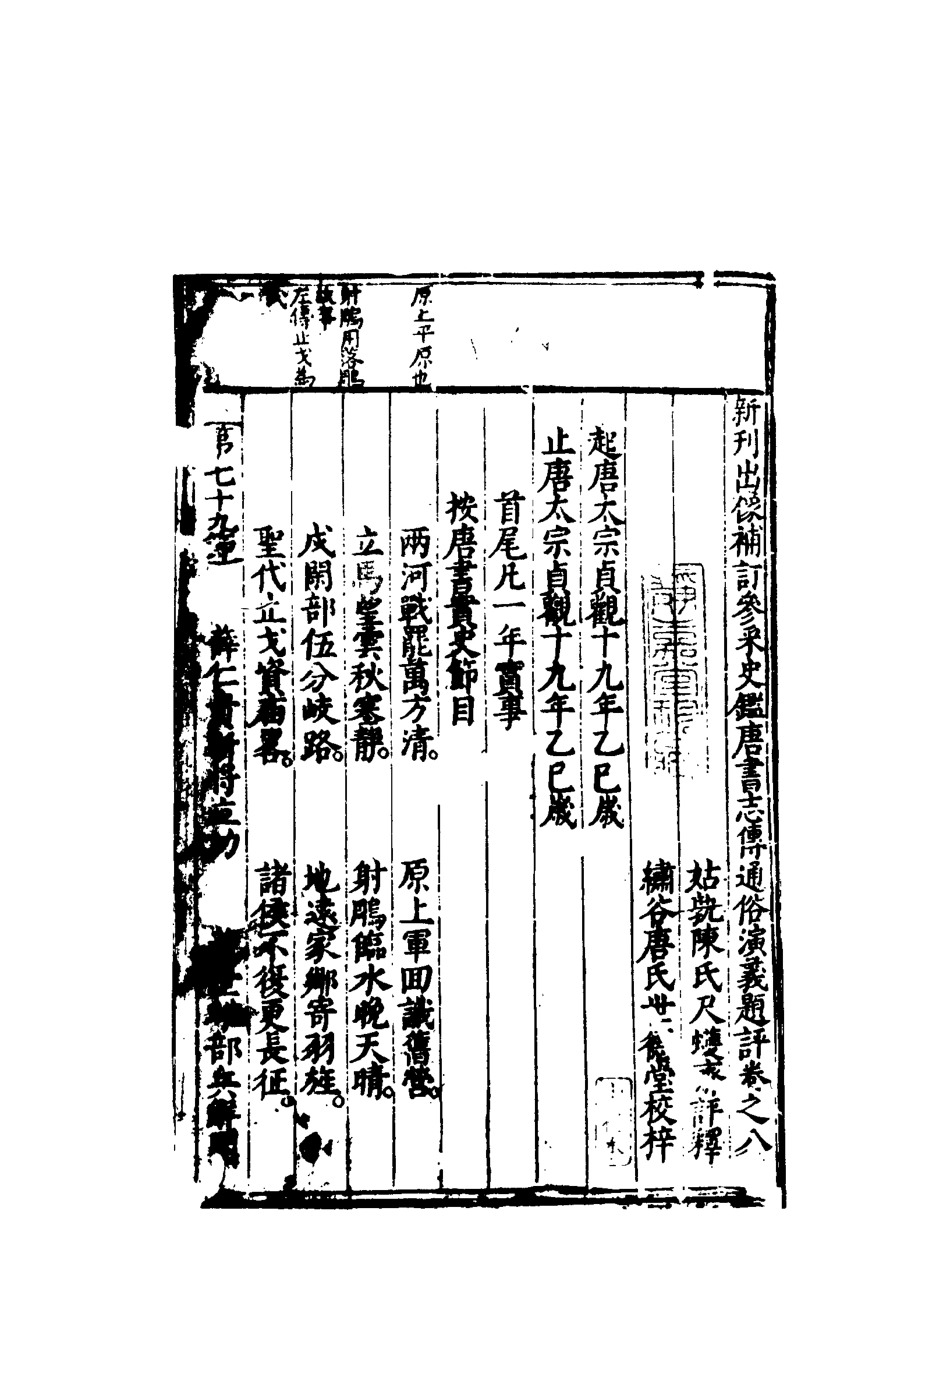 新刊出像補訂參采史鑑唐書志傳通俗演義題評卷之八
姑孰陳氏尺蠖 評釋
繡谷唐氏世 堂校梓
起唐太宗貞觀十九年乙巳歲
止唐太宗貞觀十九年乙巳歲
首尾凡一年實事
按唐書實史節目
兩河戰罷萬方清。 原上軍回識舊營。
立馬望雲秋塞靜。 射鵰臨水晚天晴。
戍閑部伍分岐路。 地遠家鄉寄羽旌。
聖代止戈資廟畧。 諸侯不復更長征。
第七十九 薛仁貴 將立功 部兵
原上平原也
射鵰用落鵰
故事
左傳止戈為
武